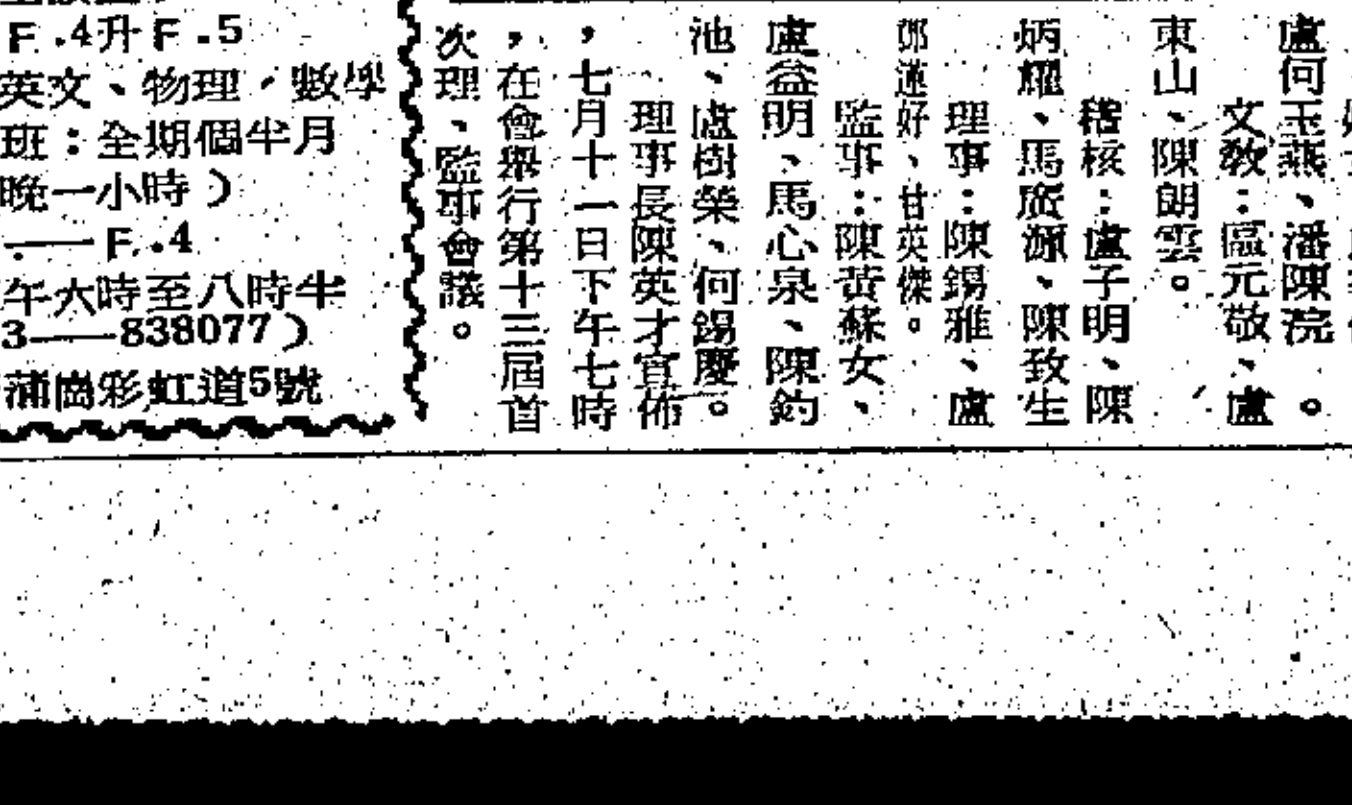 盧何玉燕、潘陳浣。
文教：區元敬、盧
東山、陳朗雲。
稽核：盧子明、陳
炳耀、馬廣源、陳致生
理事：陳錫雅、盧
鄧蓮好、甘英傑。
監事：陳黃蘇女、
盧益明、馬心泉、陳釣
池、盧樹榮、何錫慶。
理事長陳英才宣佈
，七月十一日下午七時
，在會舉行第十三屆首
次理、監事會議。
F.4升F.5
英文、物理，數學
班：全期個半月
晚一小時）
—F.4
午六時至八時半
3——838077）
蒲崗彩虹道5號